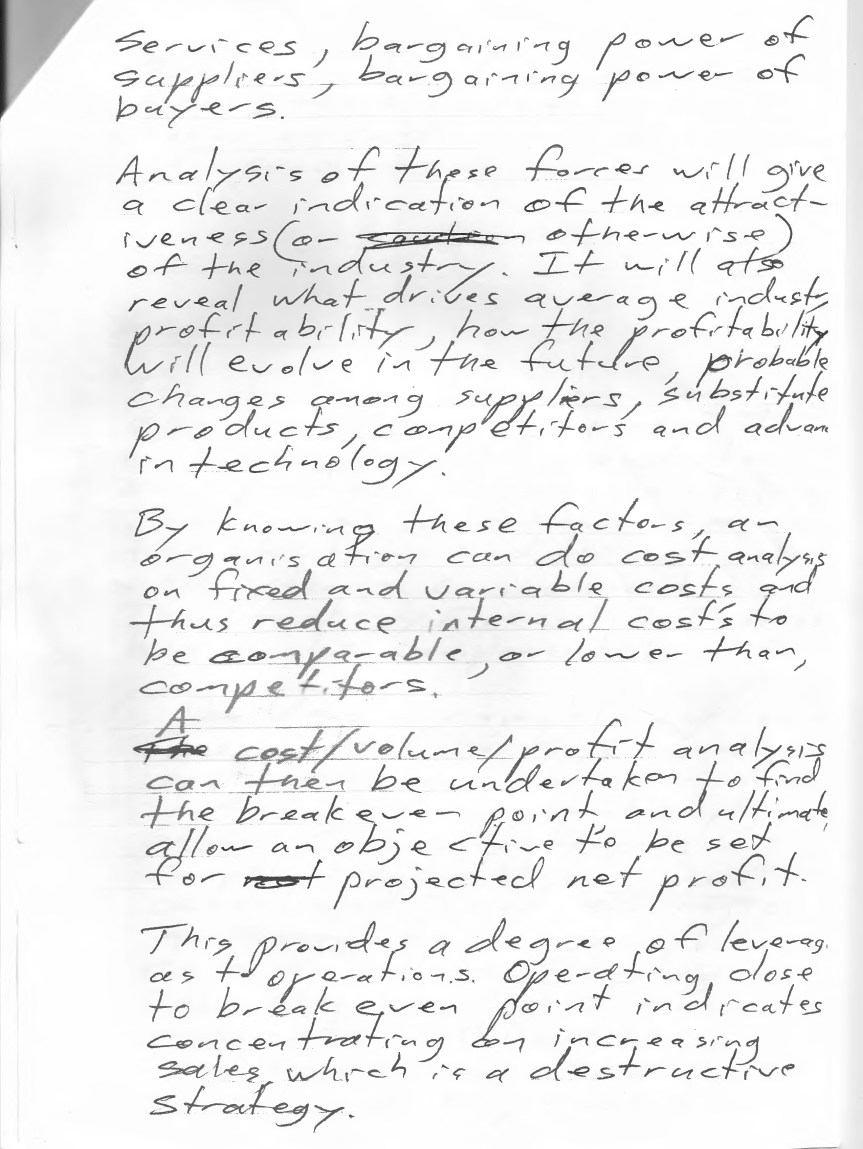 Services, bargaining power of
suppliers, bargaining power of
buyers.
Analysis of these forces will give
a clear indication of the attract-
iveness (or otherwise)
of the industry. It will also
reveal what drives average indust
profitability, how the profitability
will evolve in the future, probable
changes among suppliers, substitute
products, competitors and advan
in technology.
By knowing these factors, an
organisation can do cost analysis
on fixed and variable costs and
thus reduce internal costs to
be comparable, or lower than,
competitors.
A
The cost/volume/profit analysis
can then be undertaken to find
the breakeven point and ultimate
allow an objective to be set
for net projected net profit.
This provides a degree of leverag
as to operations. Operating close
to break even point indicates
concentrating on increasing
sales which is a destructive
strategy.